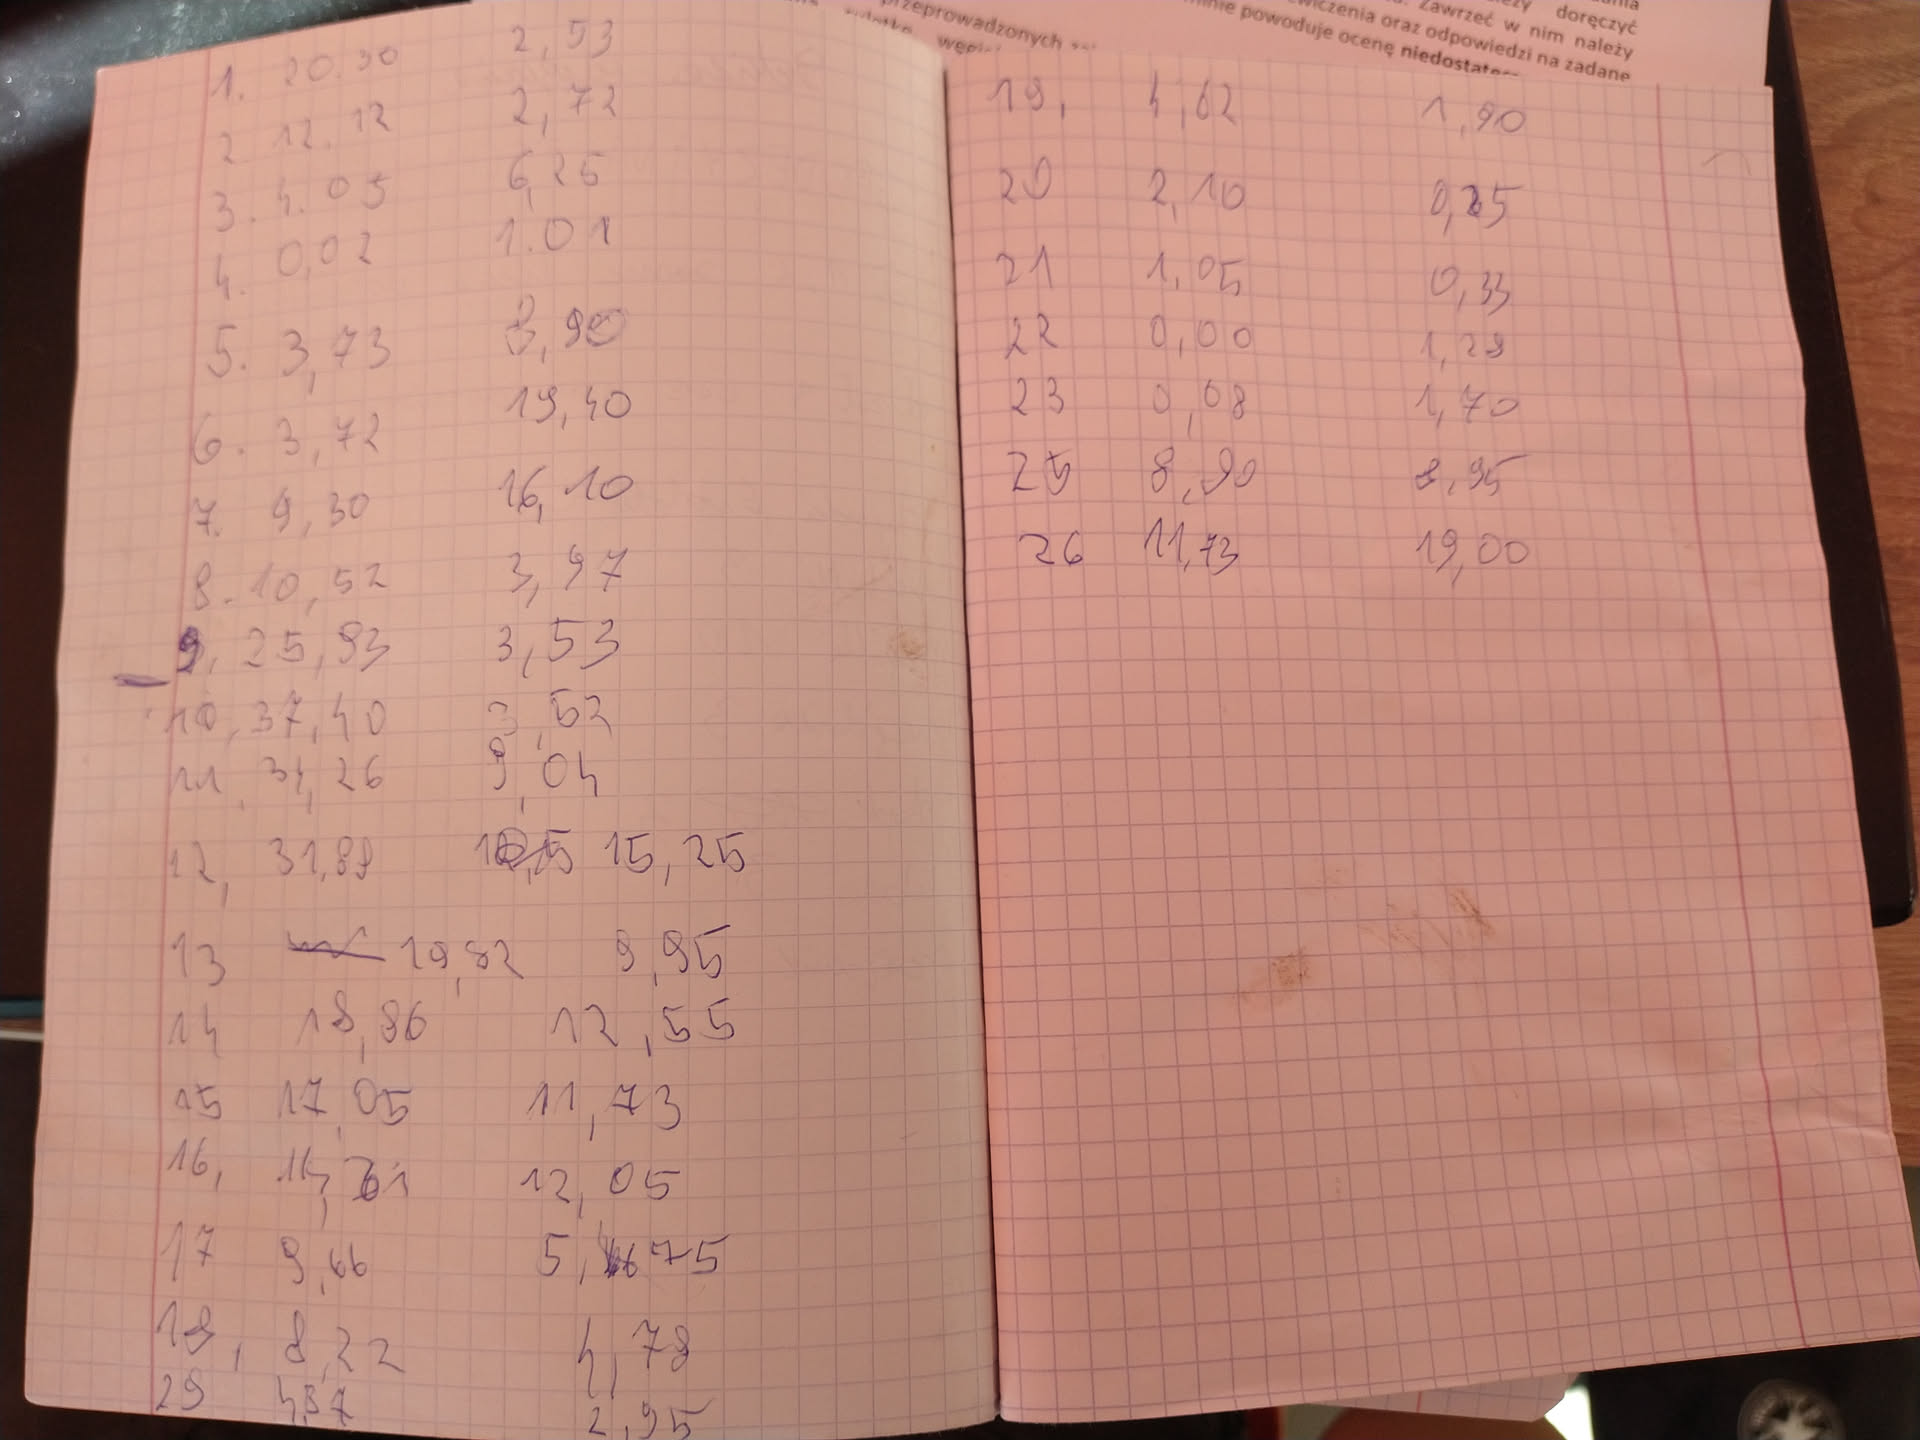 1. 20.30 2,53
2 12.12 2,72
3. 4.05 6,25
4. 0,02 1.01
5. 3,73 3,90
6. 3,72 19,40
7. 9,30 16,10
8. 10,52 3,97
9, 25,93 3,53
10, 37,40 3,52
11, 34,26 9,04
12, 31,89 15,25
13 19,82 9,95
14 18,86 12,55
15 17,05 11,73
16, 12,05
17 9,66 5,75
18, 8,22 4,78
29 4,87 2,95
przeprowadzonych
doręczyć
Zawrzeć w nim należy
oraz odpowiedzi na zadane
powoduje ocenę
19, 4,62 1,90
20 2,10 0,25
21 1,05 0,33
22 0,00 1,29
23 0,08 1,70
25 8,90 8,95
26 11,73 19,00